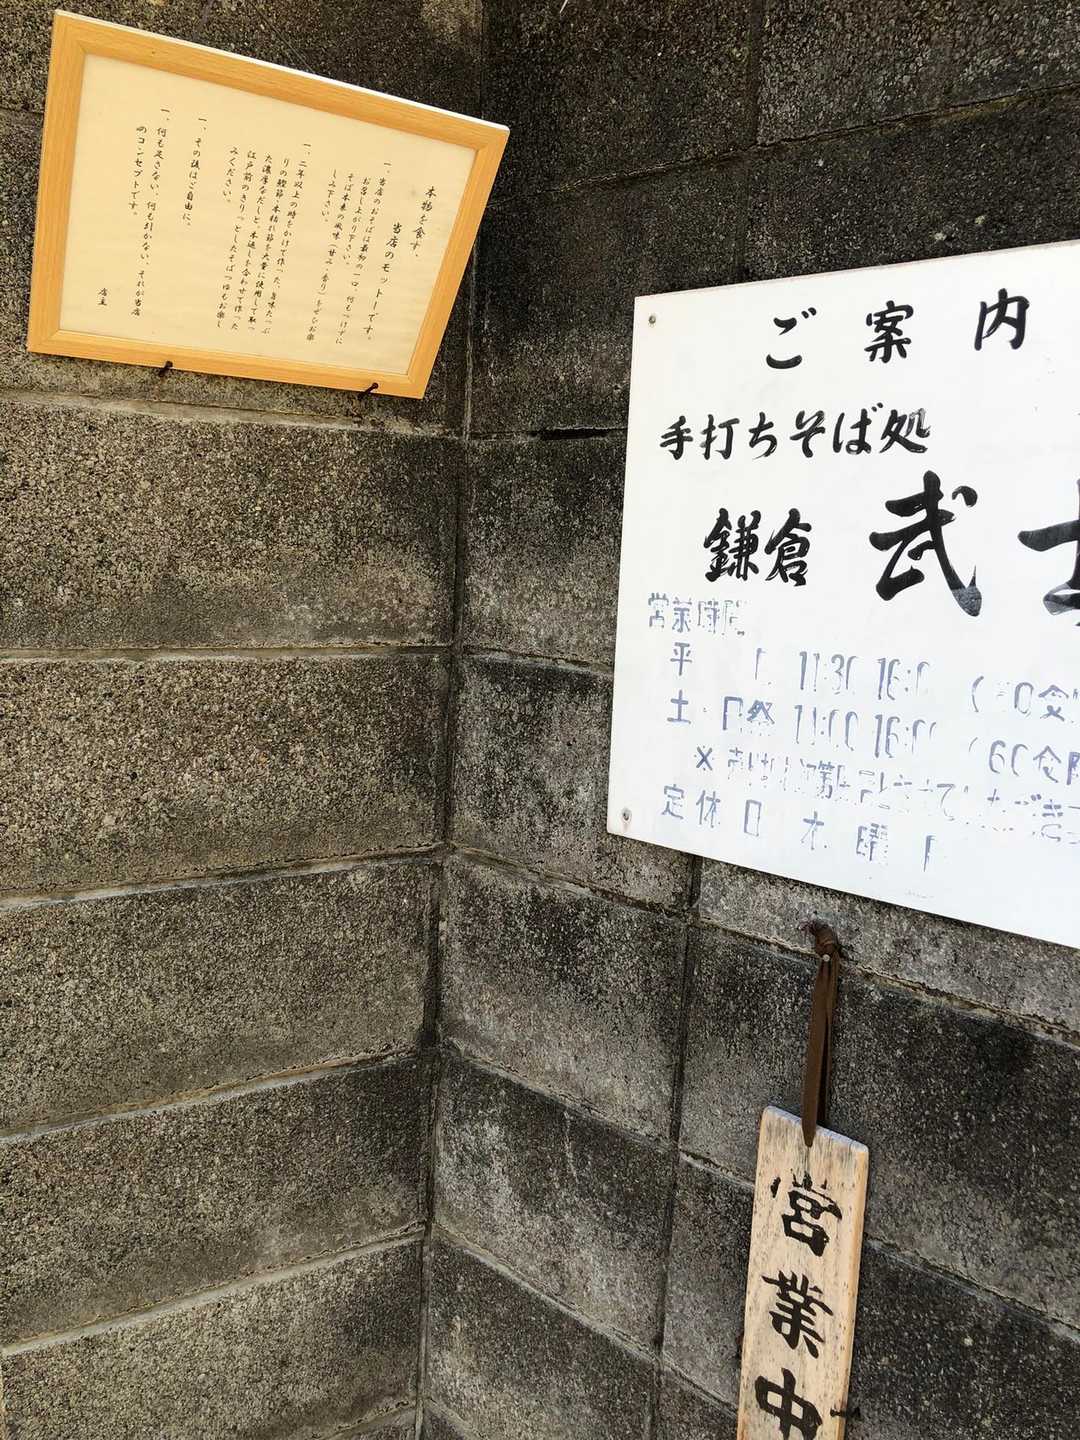 本物を食す、
当店のモットーです。
一、当店のおそばは最初の一口、何もつけずに
お召し上がり下さい。
そば本来の風味(甘み・香り)をぜひお楽
しみ下さい。
一、二年以上の時をかけて作った、旨味たっぷ
りの鰹節、本枯れ節を大量に使用して取っ
た濃厚なだしと、本返しを合わせて作った
江戸前のきりっとしたそばつゆもお楽し
みください。
一、その後はご自由に。
一、何も足さない、何も引かない、それが当店
のコンセプトです。
店主
ご案内
手打ちそば処
鎌倉 武士
営業時間
平 日 11:30 16:0
土・日祭 11:00 16:00 (60食限
※売
定休日 木曜日
営業中